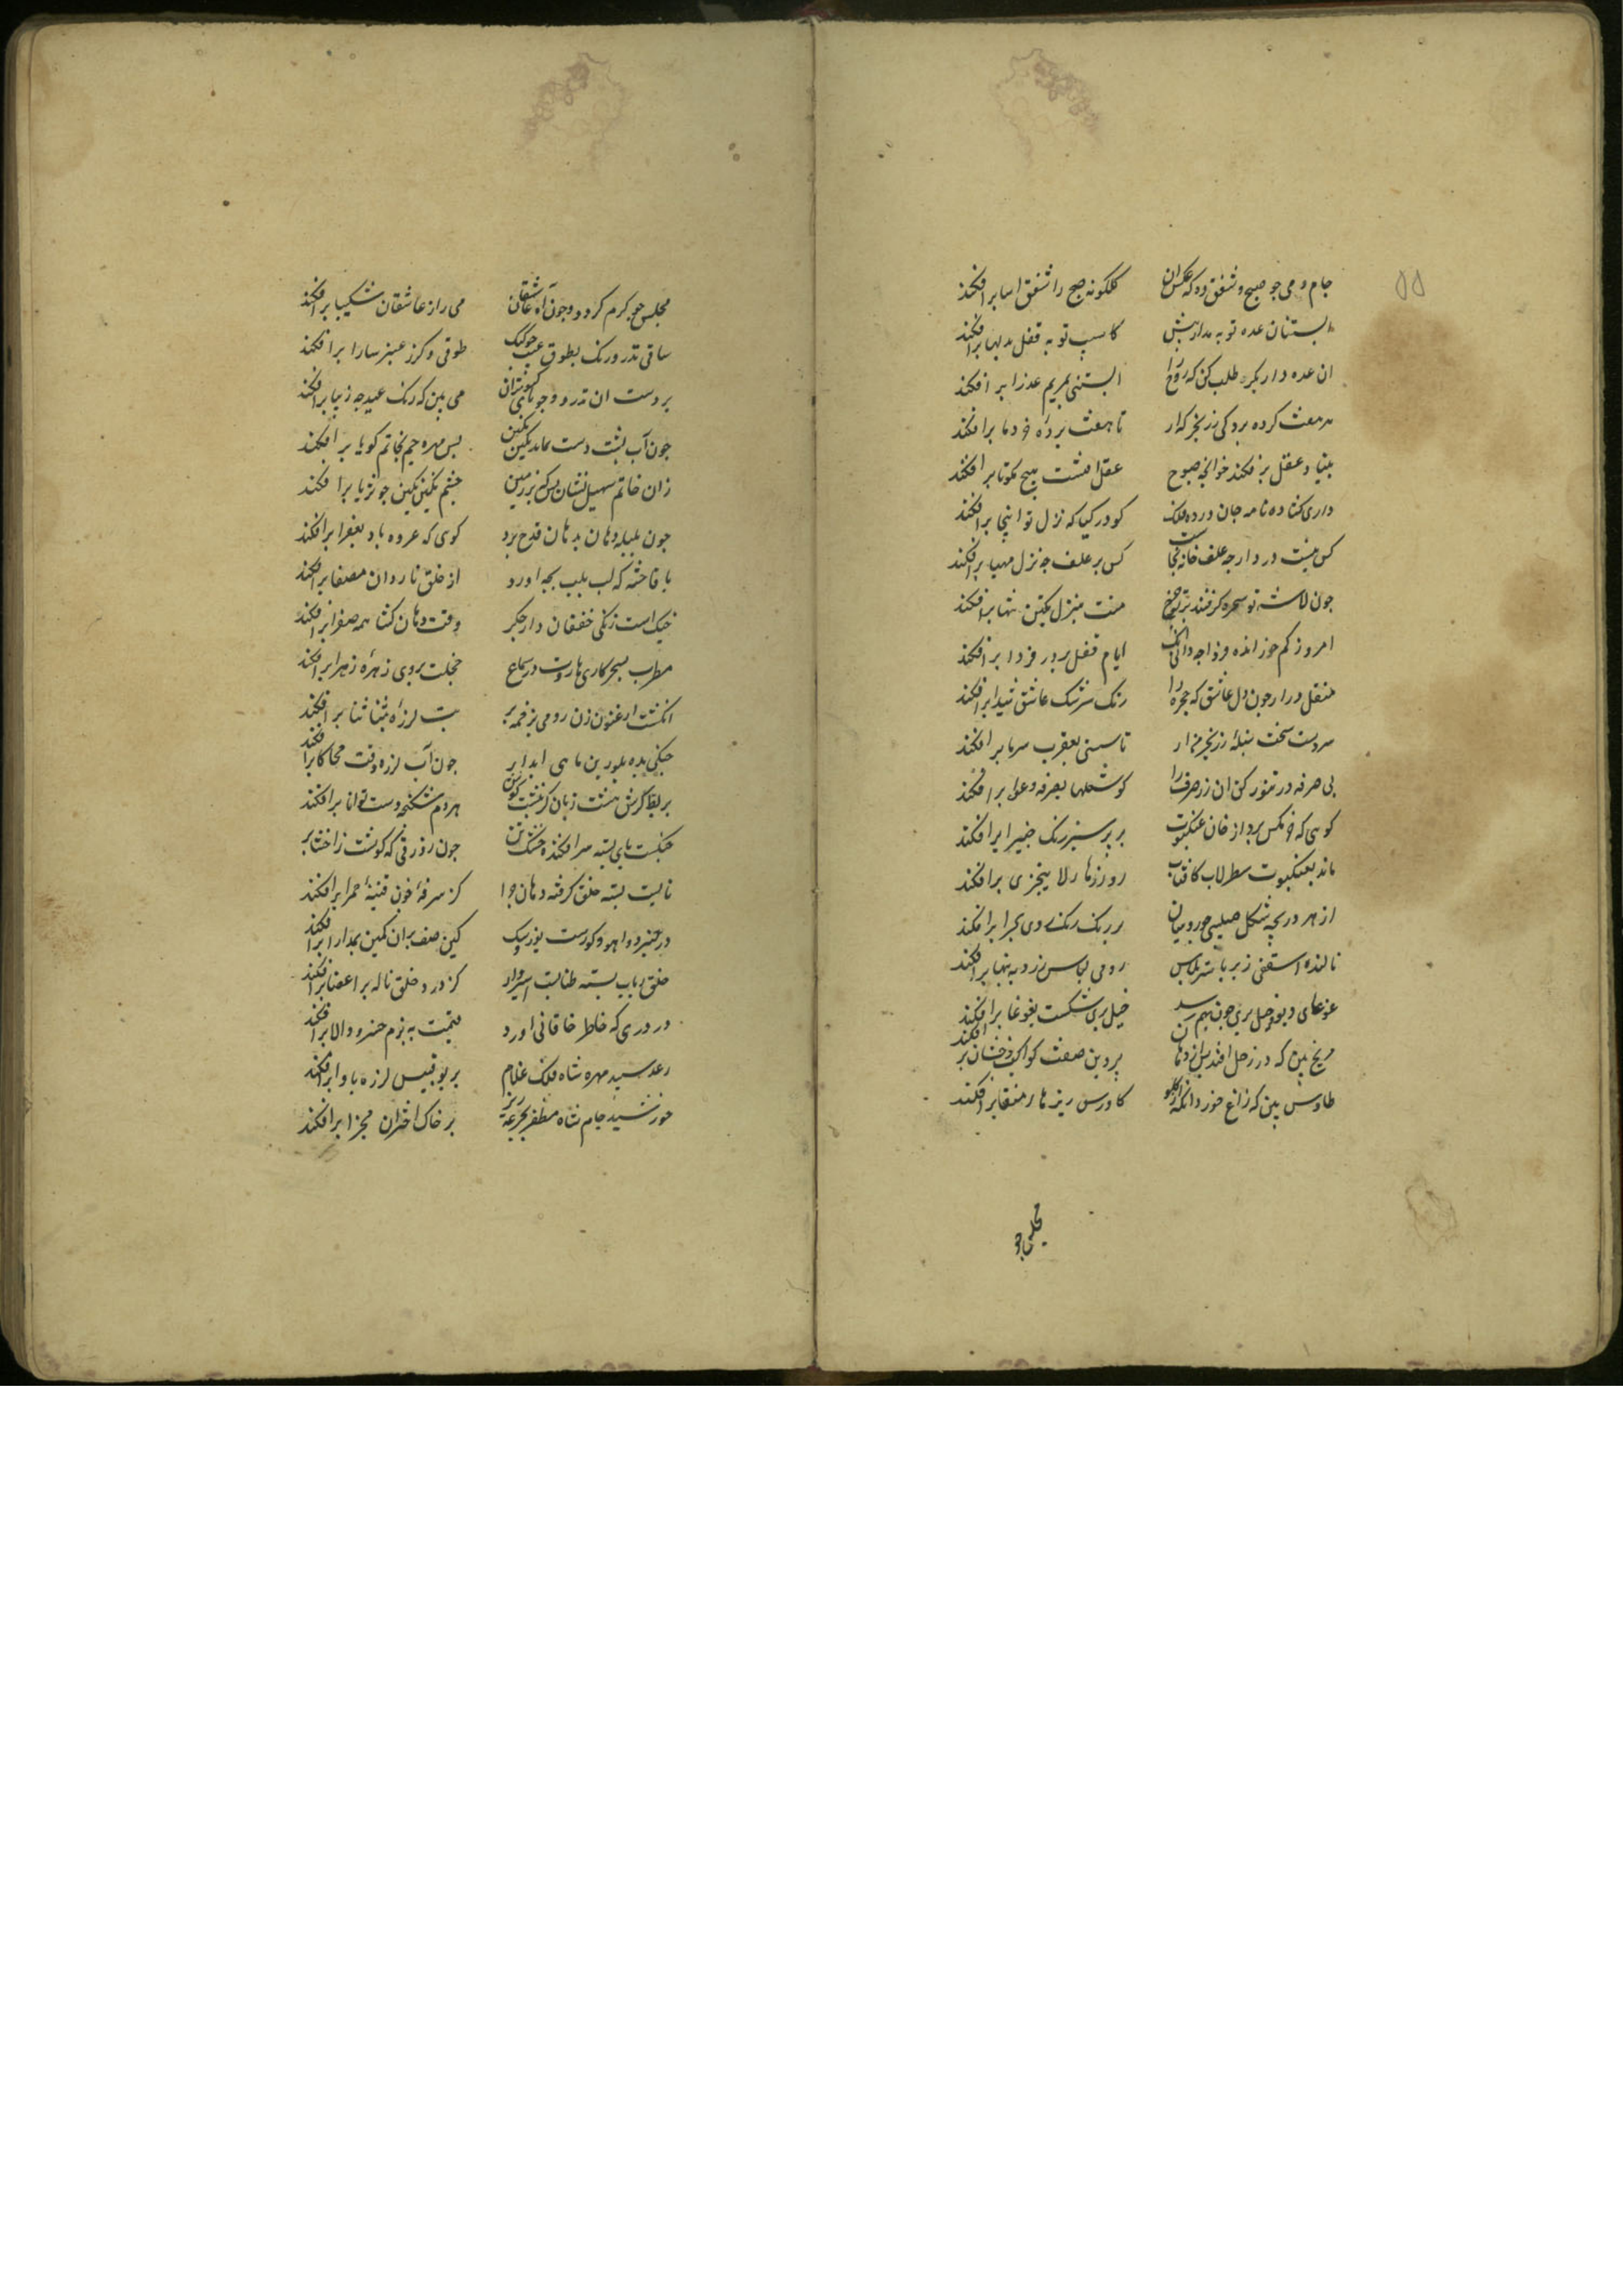 ۵۵
جام و می چو صبح و شفق ده که عکس ان گلگونه صبح را شفق اسا برافکند
ابستنان عده توبه بدار پیش کاسیب توبه قفل بدلها برافکند
ان عده دار بکر طلب کن که روح را ابستنی بمریم عذرا برافکند
هر هفت کرده پردکی رز بخرکه ار تا هفت پرده خرد ما برافکند
بنیاد عقل برفکند خوانچه صبوح عقل افتست هیچ مکو تا برافکند
داری کشاده نامه جان در ده فلک کو در کیا که نزل تو اینجا برافکند
کس نیست در ده ار چه علف خانه بجاست کس بر علف چه نزل مهیا برافکند
چون لاشه تو سخره کرفتند بر تو چرخ منت بنزل یکتن تنها برافکند
امروز کم خور انده فردا چه دانی انک ایام قفل بر در فردا برافکند
منقل در ار چون دل عاشق که حجره را رنک سرشک عاشق شیدا برافکند
سردست سخت سنبله رز بخرمن ار تا سستی بعقرب سرما برافکند
بی صرفه در تنور کن ان زر صرف را کو شعلها بصرفه و عوا برافکند
کوئی که خرمکس پرد از خان عنکبوت بر پر سبز رنک غبیرا برافکند
ماند بعنکبوت سطرلاب کافتاب زو ذرها ر لایتجزی برافکند
از هر دریچه شکل صلیبی چو رومیان بر رنک رنک روی بحیرا برافکند
نالنده اسقفی ز بر بستر پلاس رومی لباس زر و به بنها برافکند
غوغای دیو و خیل پری چون بهم رسند خیل پری شکست بغوغا برافکند
مریخ بین که در زحل افتد پس از دهان پروین صفت کواکب رخشان برافکند
طاوس بین که زاغ خورد وانکه از کلو کاورس ریزها ر منقا برافکند
مجلس چو
مجلس چو کرم کردد و چون آه عاشقان می راز عاشقان شکیبا برافکند
ساقی تذرو رنک بطوق غبب چو کبک طوقی دکر ز عنبر سارا برافکند
بر دست ان تذرو چو پای کبوتران می بین که رنک عید چه زیبا برافکند
چون آب پشت دست نماید نکین نکین پس مهره جم بخاتم کویا برافکند
زان خاتم سهیل نشان بس که بر زمین چشم نکین نکین چو ثریا برافکند
چون بلبله دهان بدهان قدح برد کوئی که عروه باد بعفرا برافکند
یا فاخته که لب بلب بچه اورد از حلق ناردان مصفا برافکند
خیک است زنکی خفقان دار کز جکر وقت دهان کشا همه صفرا برافکند
مطرب بسحرکاری هاروت در سماع خجلت بروی زهره زهرا برافکند
انکشت ارغنون زن رومی بزخمه بر تب لرزه تنا تننا برافکند
چنکی بده بلورین ماهی ابدار چون آب لرزه وقت محاکا برافکند
بربط کریش هشت زبان کش بهشت کوش هر دم شکنجه دست توانا برافکند
چنکست پای بسته سر افکنده خشک تن چون زورقی که کوشت ز احشا برافکند
نایست بسته حلق کرفته دهان چرا کز سرفه خون قنینه حمرا برافکند
در چنبر دف اهو و کورست یوز و سک کین صف بران کمین بمدارا برافکند
حلق رباب بسته طنابست اسیروار کز درد حلق ناله بر اعضا برافکند
در دری که خاطر خاقانی اورد قیمت به بزم خسرو والا برافکند
رعد سپید مهره شاه فلک غلام بر بوقبیس لرزه باوا برافکند
خورشید جام شاه مظفر بجرعه ریز بر خاک اختران مجزا برافکند